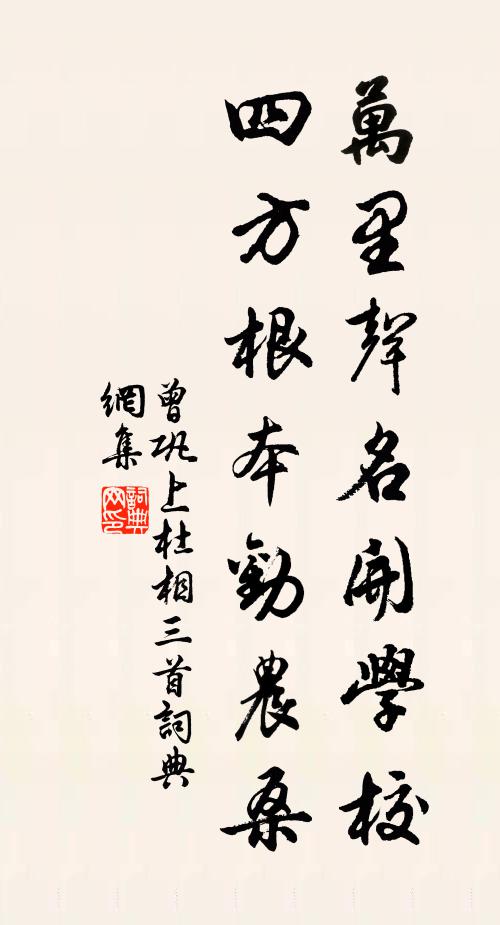 萬里聲名開學校
四方根本勸農桑
曾巩上杜相三首詞典
網集
詞典
网印